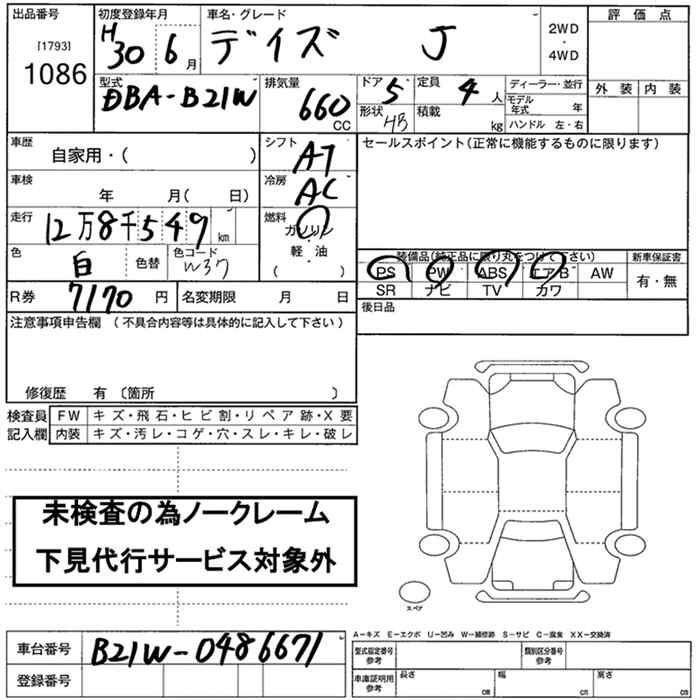 出品番号 初度登録年月 車名・グレード 評価点
[1793] H30 6月 デイズ J 2WD・4WD
1086
外装 内装
型式 排気量 ドア 5 定員 4人 ディーラー・並行
DBA-B21W 660CC 形状 4B 積載 kg モデル年式 年
ハンドル 左・右
車歴 自家用・( ) シフト AT セールスポイント(正常に機能するものに限ります)
車検 年 月( 日) 冷房 AC
走行 12万8千549km 燃料 ガソリン
色 白 色替 色コード W37 軽・油
( )
装備品(純正品に限り丸をつけて下さい) 新車保証書
PS PW ABS エアB AW 有・無
SR ナビ TV カワ
R券 7170円 名変期限 月 日 後日品
注意事項申告欄 (不具合内容等は具体的に記入して下さい)
修復歴 有 (箇所 )
検査員 FW キズ・飛石・ヒビ割・リペア跡・X要
記入欄 内装 キズ・汚レ・コゲ・穴・スレ・キレ・破レ
未検査の為ノークレーム
下見代行サービス対象外
スペア
A−キズ E−エクボ U−凹み W−補修跡 S−サビ C−腐食 XX−交換済
車台番号 B21W-0486671 型式指定番号 参考 類別区分番号 参考
登録番号 車庫証明用 参考 長さ cm 幅 cm 高さ cm